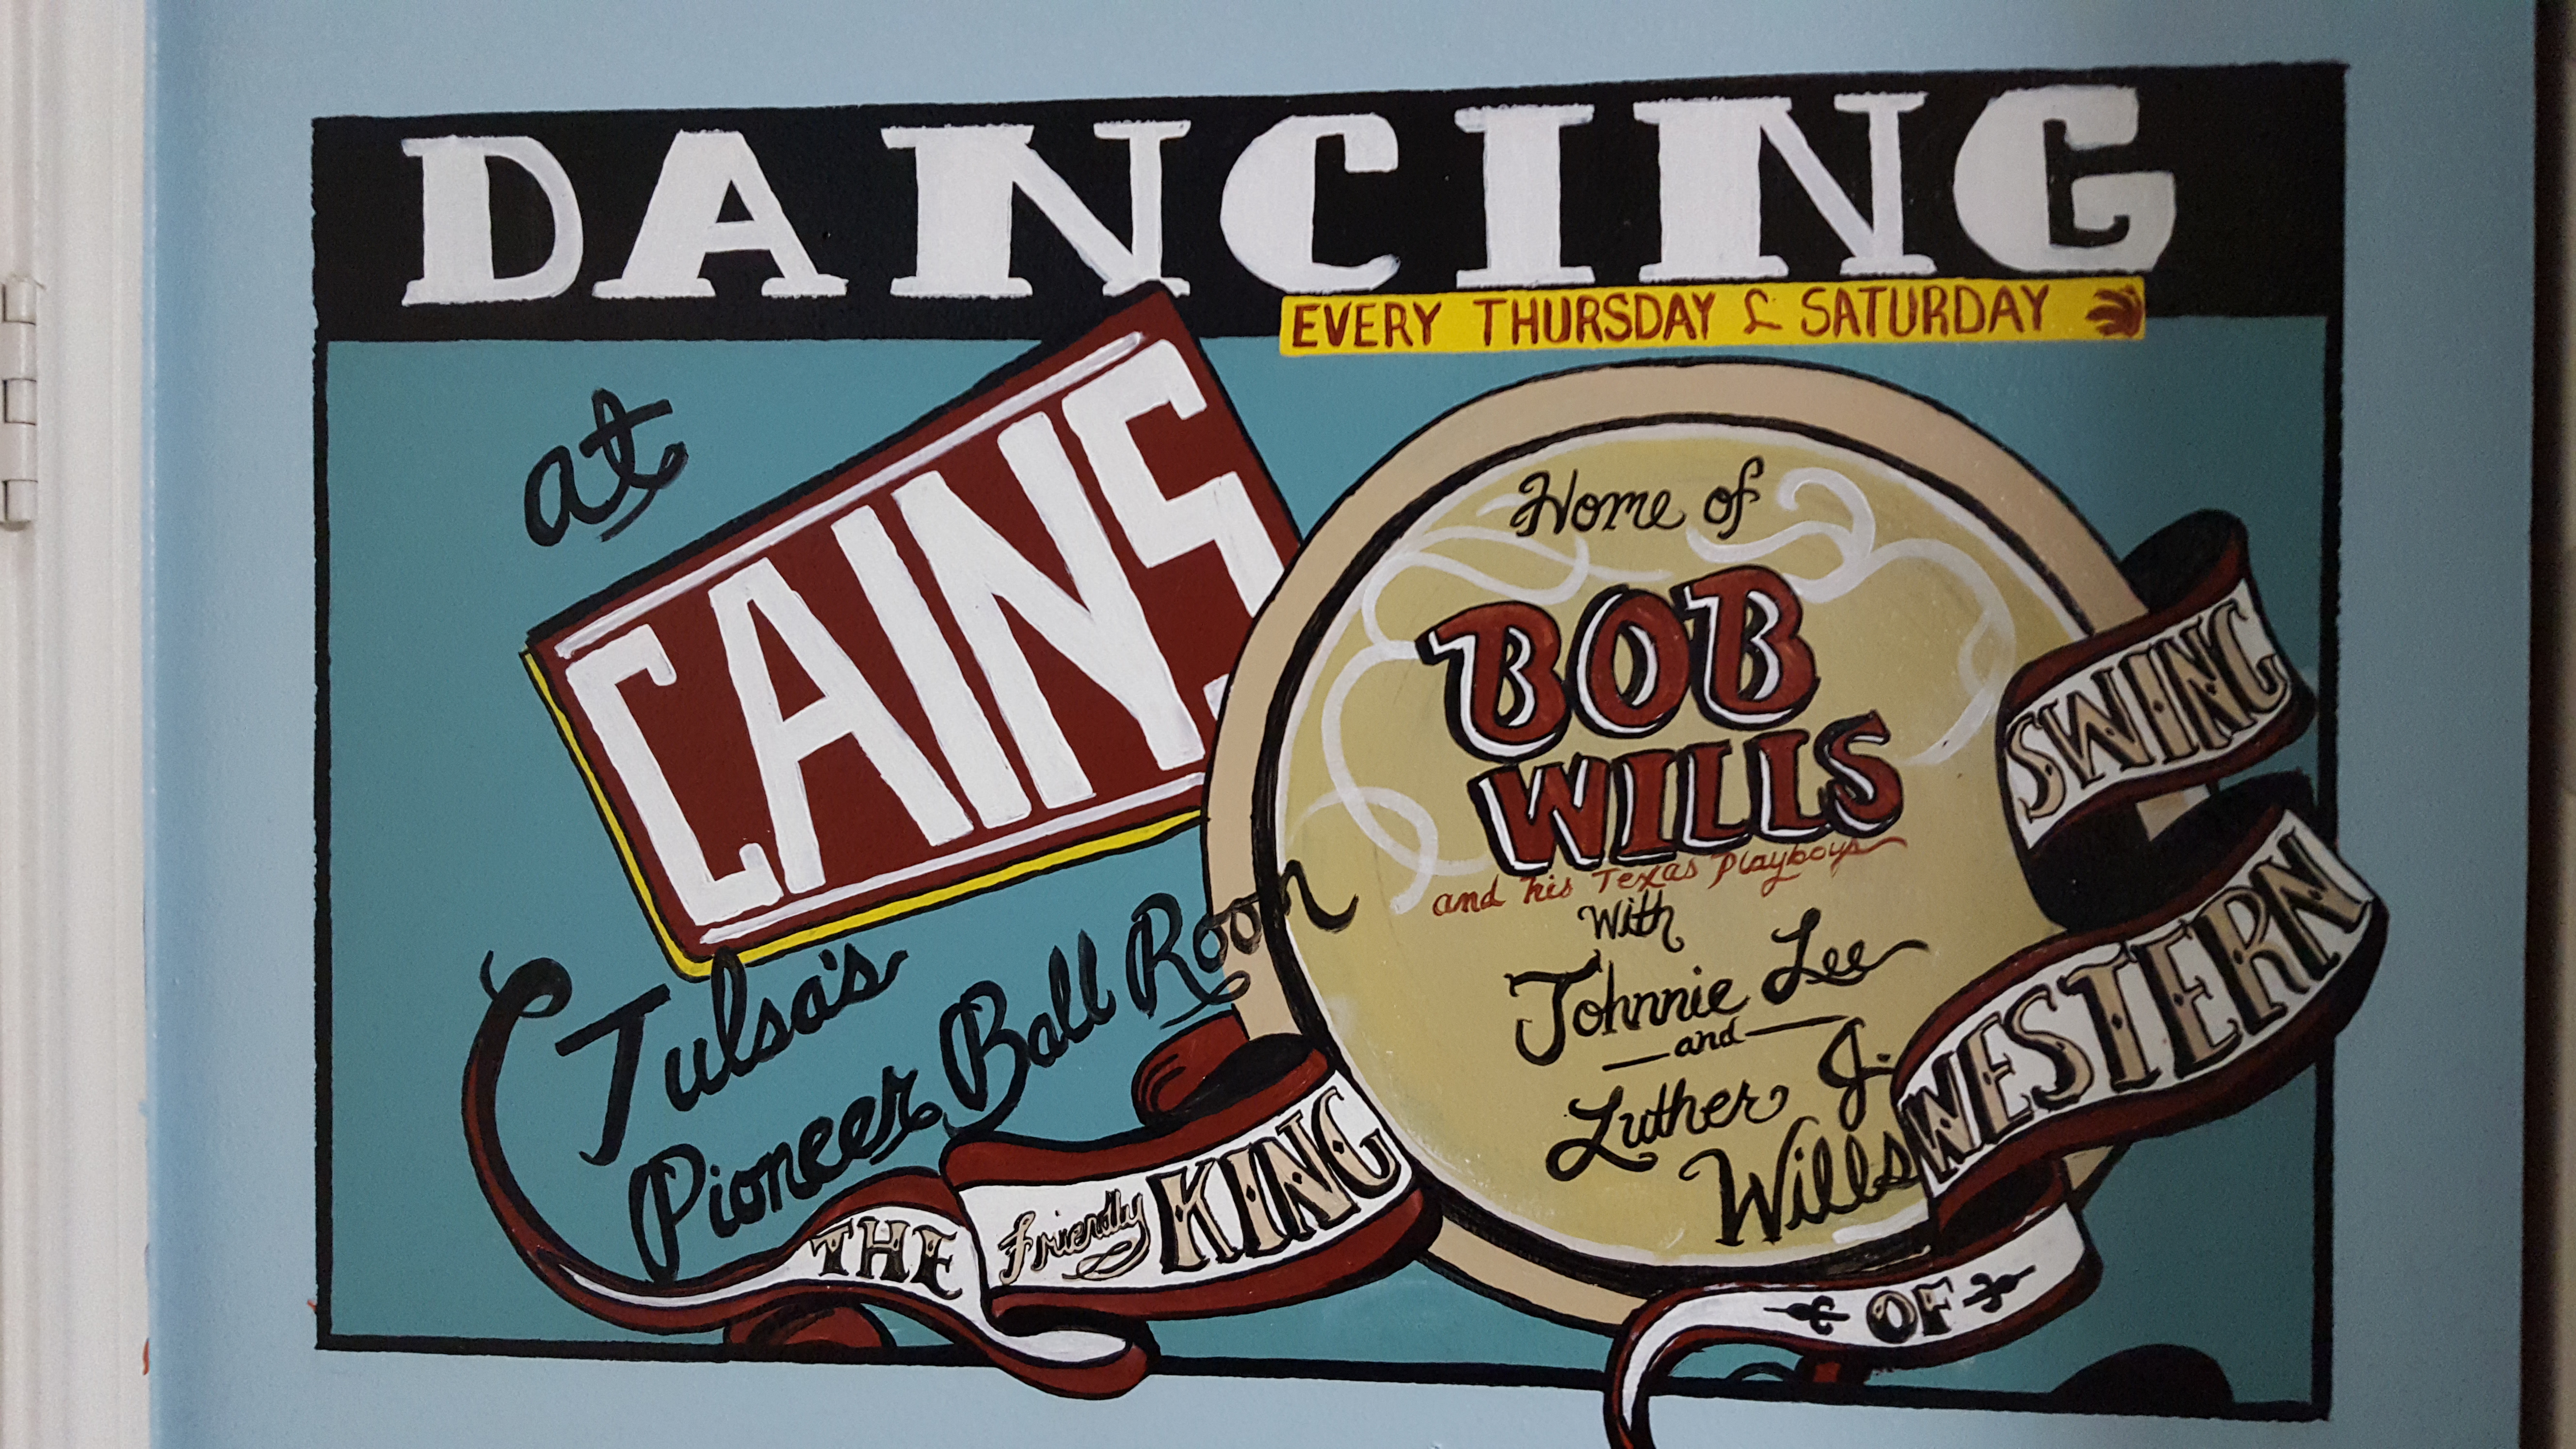 DANCING
EVERY THURSDAY & SATURDAY
at
CAINS
Tulsa's
Pioneer Ball Room
Home of
BOB
WILLS
and his Texas Playboys
With
Johnnie Lee
and
Luther J.
Wills
THE friendly KING
OF
WESTERN
SWING